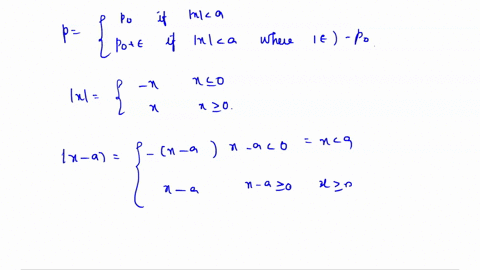 p = { p₀ if |x| < a
p₀+ε if |x| < a where |ε) - p₀.
|x| = { -x x ≤ 0
x x ≥ 0.
|x-a) = { -(x-a) x-a < 0 = x < a
x-a x-a ≥ 0 x ≥